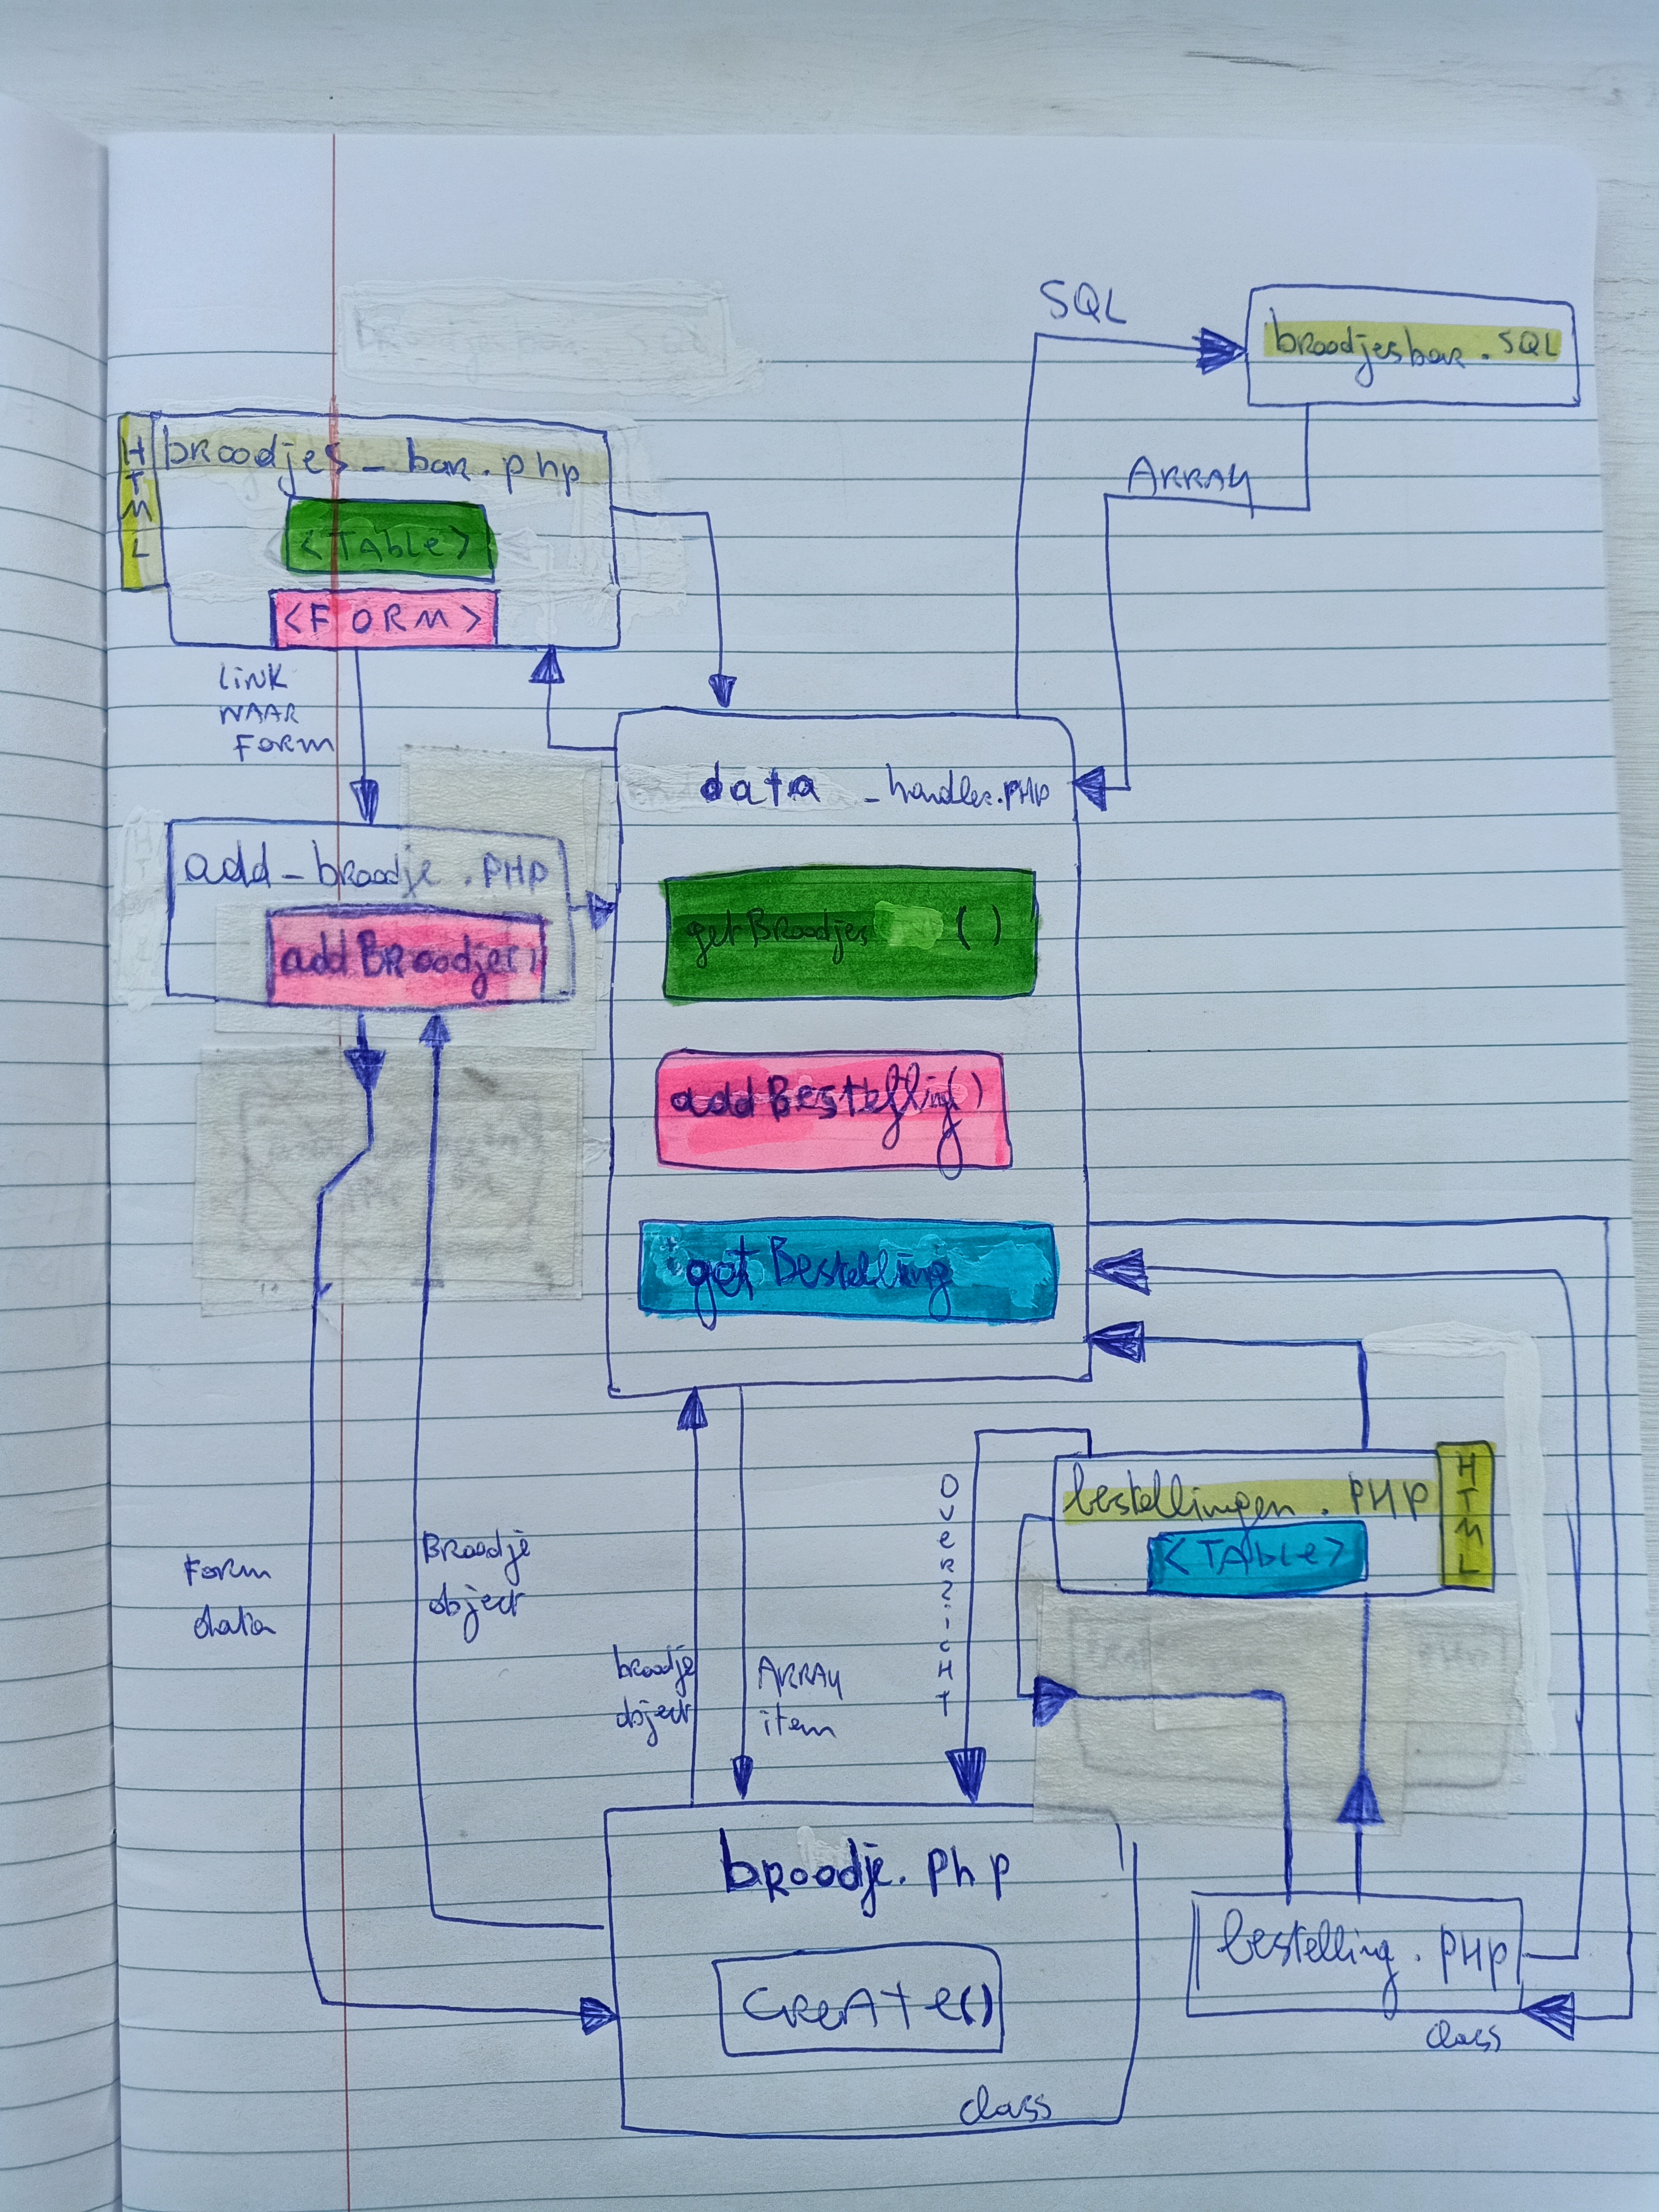 SQL
broodjesbar.SQL
ARRAY
HTML
broodjes_bar.php
<TAble>
<FORM>
LiNK
NAAR
FORM
data_handler.PHP
add_broodje.PHP
addBRoodje()
getBroodjes ()
addBestelling()
getBestelling
OVeRZicHT
bestellingen.PHP
<TAble>
HTML
Form
data
BRoodje
object
broodje
object
ARRAY
item
broodje.php
CReAte()
class
bestelling.PHP
class